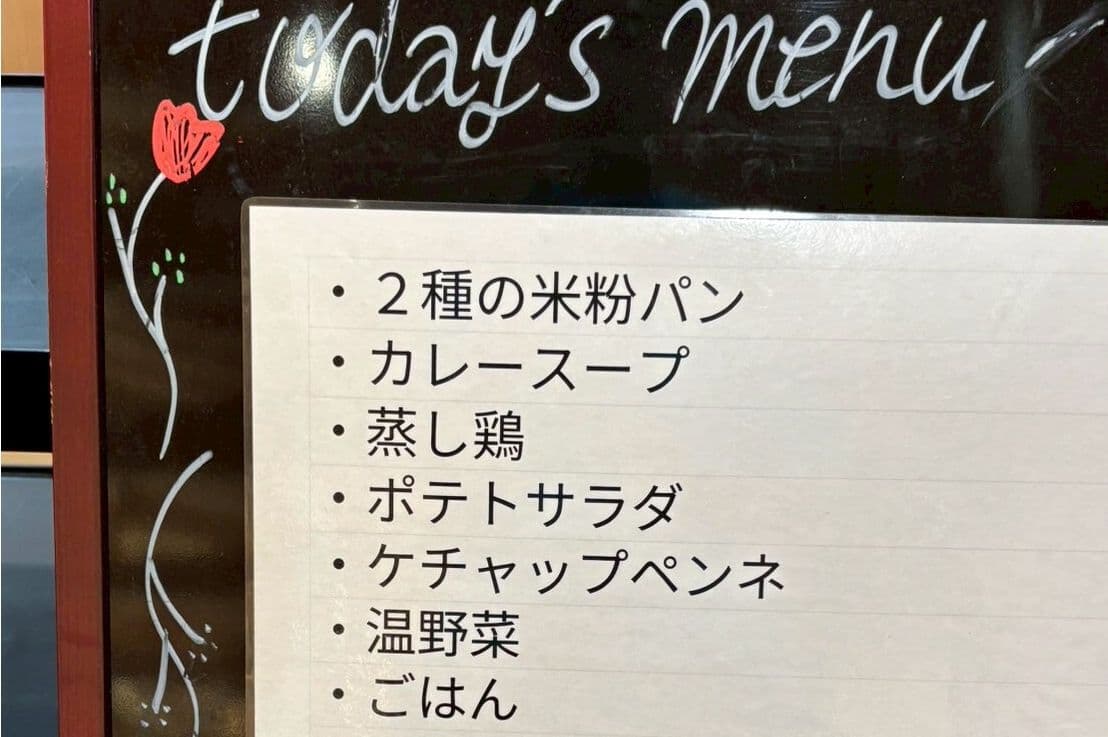 today's menu
・２種の米粉パン
・カレースープ
・蒸し鶏
・ポテトサラダ
・ケチャップペンネ
・温野菜
・ごはん